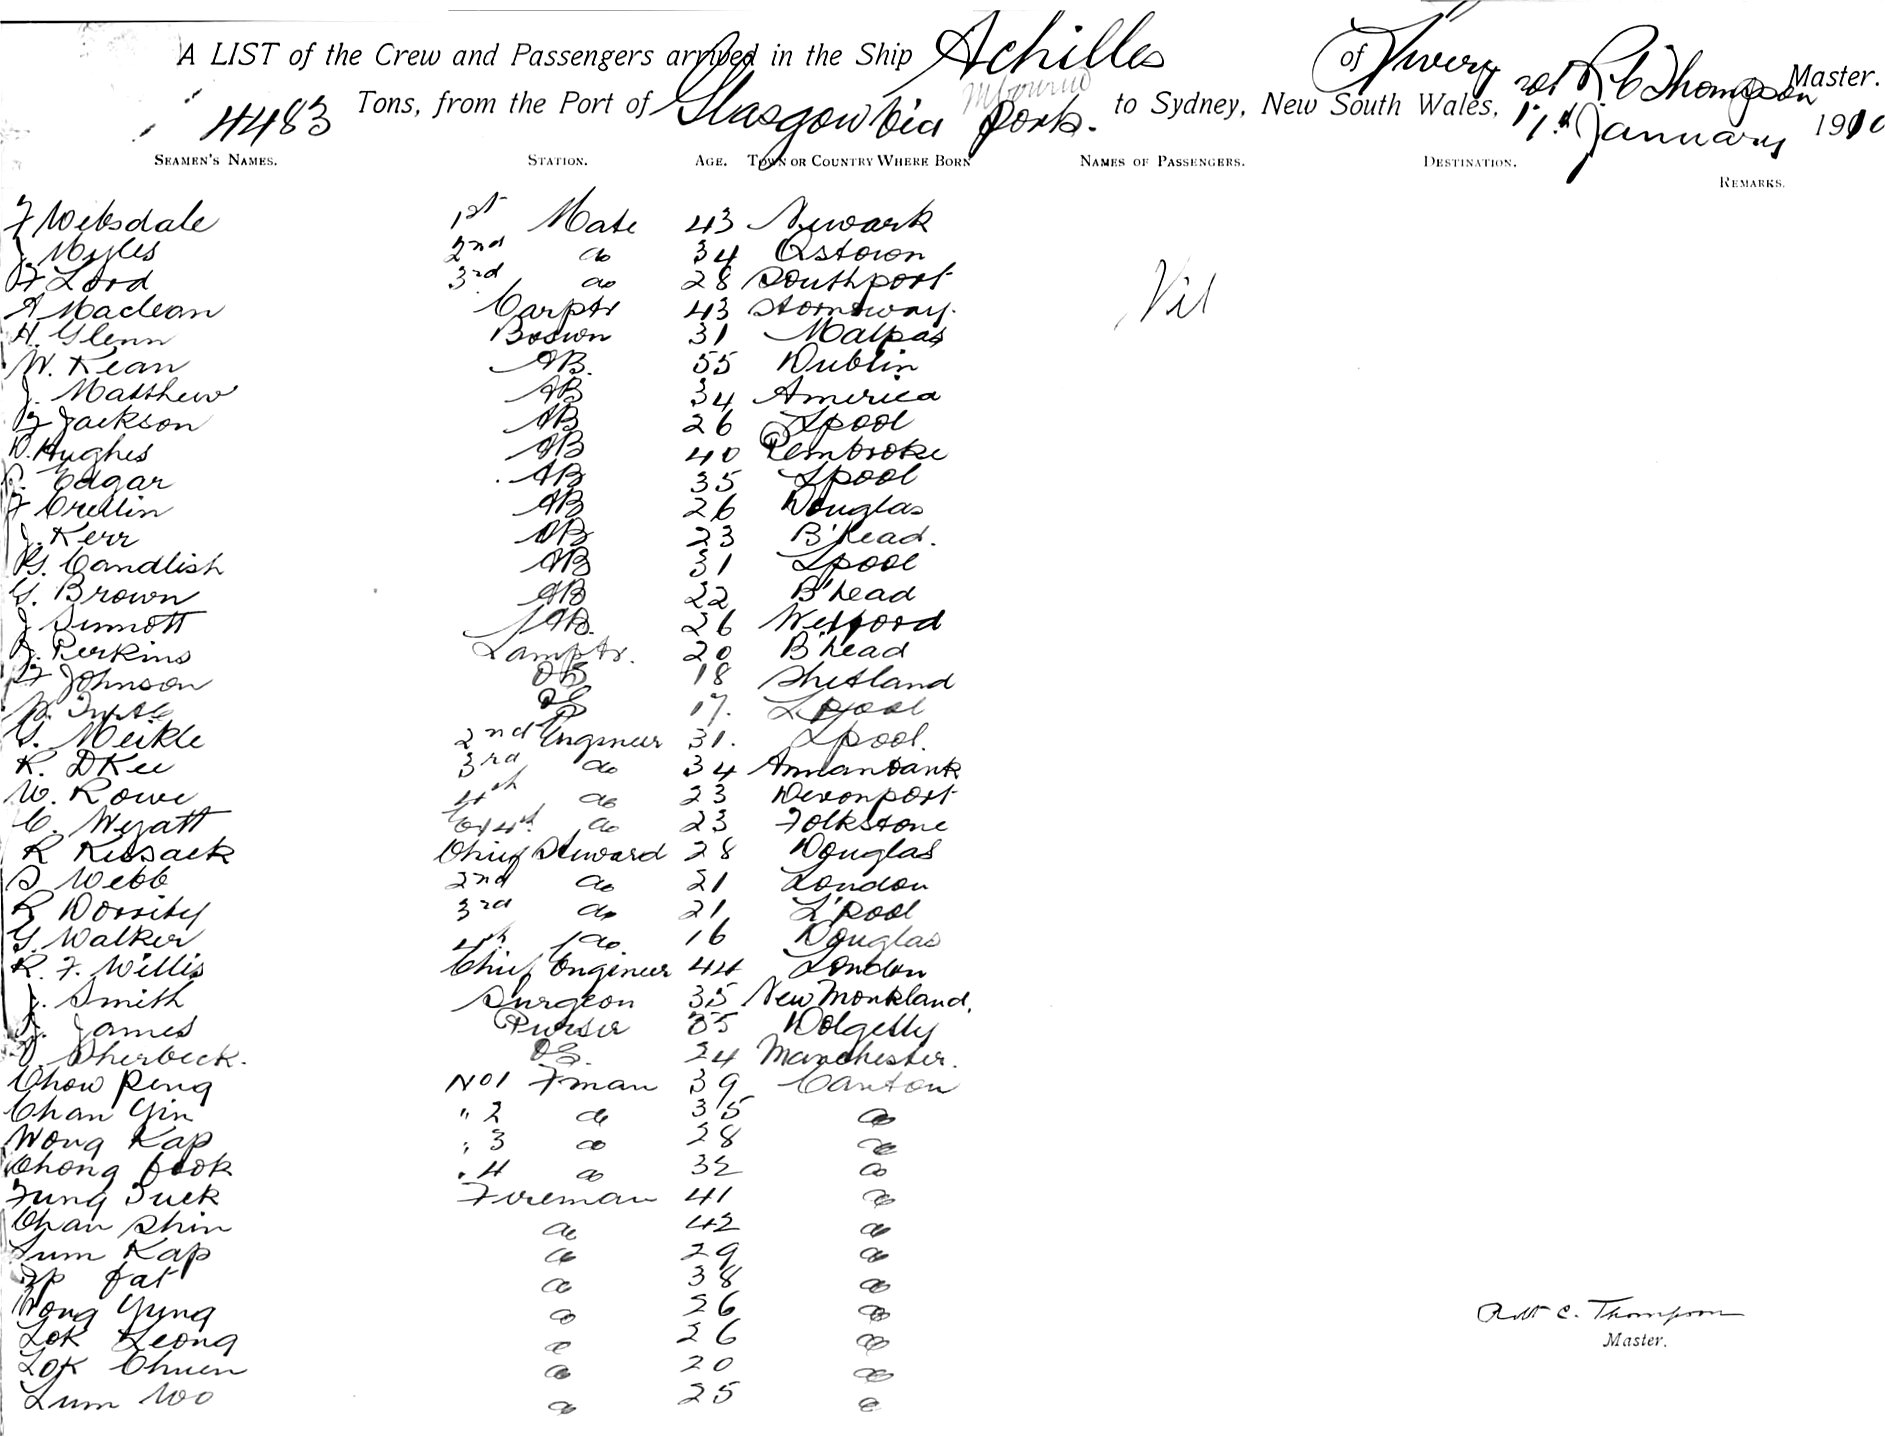 A LIST of the Crew and Passengers arrived in the Ship Achilles of R. C Thompson Master.
4483 Tons, from the Port of Glasgow via Melbourne Ports. to Sydney, New South Wales, 17th January 1910
SEAMEN'S NAMES. STATION. AGE. TOWN OR COUNTRY WHERE BORN NAMES OF PASSENGERS. DESTINATION. REMARKS.
F Websdale 1st Mate 43 Newark
J. Myles 2nd do 34 Qstown
F Lord 3rd do 28 Southport Nil
A Maclean Carptr 43 Stornoway.
H. Glenn Bosun 31 Malpas
W. Kean AB. 55 Dublin
J. Matthew AB 34 America
F Jackson AB 26 Lpool
D. Hughes AB 40 Pembroke
Edgar AB 35 Lpool
F Crellin AB 26 Douglas
J. Kerr AB 23 B'head.
Candlish AB 31 Lpool
G. Brown AB 22 B'head
J Sinnott AB. 26 Wexford
J. Perkins Lamptr. 20 B'head
F Johnson OS 18 Shetland
OS 17. Lpool
G. Meikle 2nd Engineer 31. Lpool.
R. 3rd do 34 Annanbank
W. Rowe 4th do 23 Devonport
C. Wyatt Ex 4th do 23 Folkstone
R Kissack Chief Steward 28 Douglas
S Webb 2nd do 21 London
R Dorrity 3rd do 21 L'pool
G. Walker 4th do 16 Douglas
R. F. Willis Chief Engineer 44 London
J. Smith Surgeon 35 New Monkland.
J. James Purser 35 Dolgelly
Sherbeck. OS. 24 Manchester.
Chow Peng No 1 Fman 39 Canton
Chan Yin " 2 do 35 do
Wong Kap " 3 do 28 do
Chong Fook " 4 do 32 do
Fung Tuck Fireman 41 do
Chan Shin do 42 do
Lum Kap do 29 do
Ip Fat do 38 do
Wong Yung do 26 do
Lok Leong do 26 do
Lok Chuen do 20 do
Lum Woo do 25 do
Robt C. Thompson
Master.